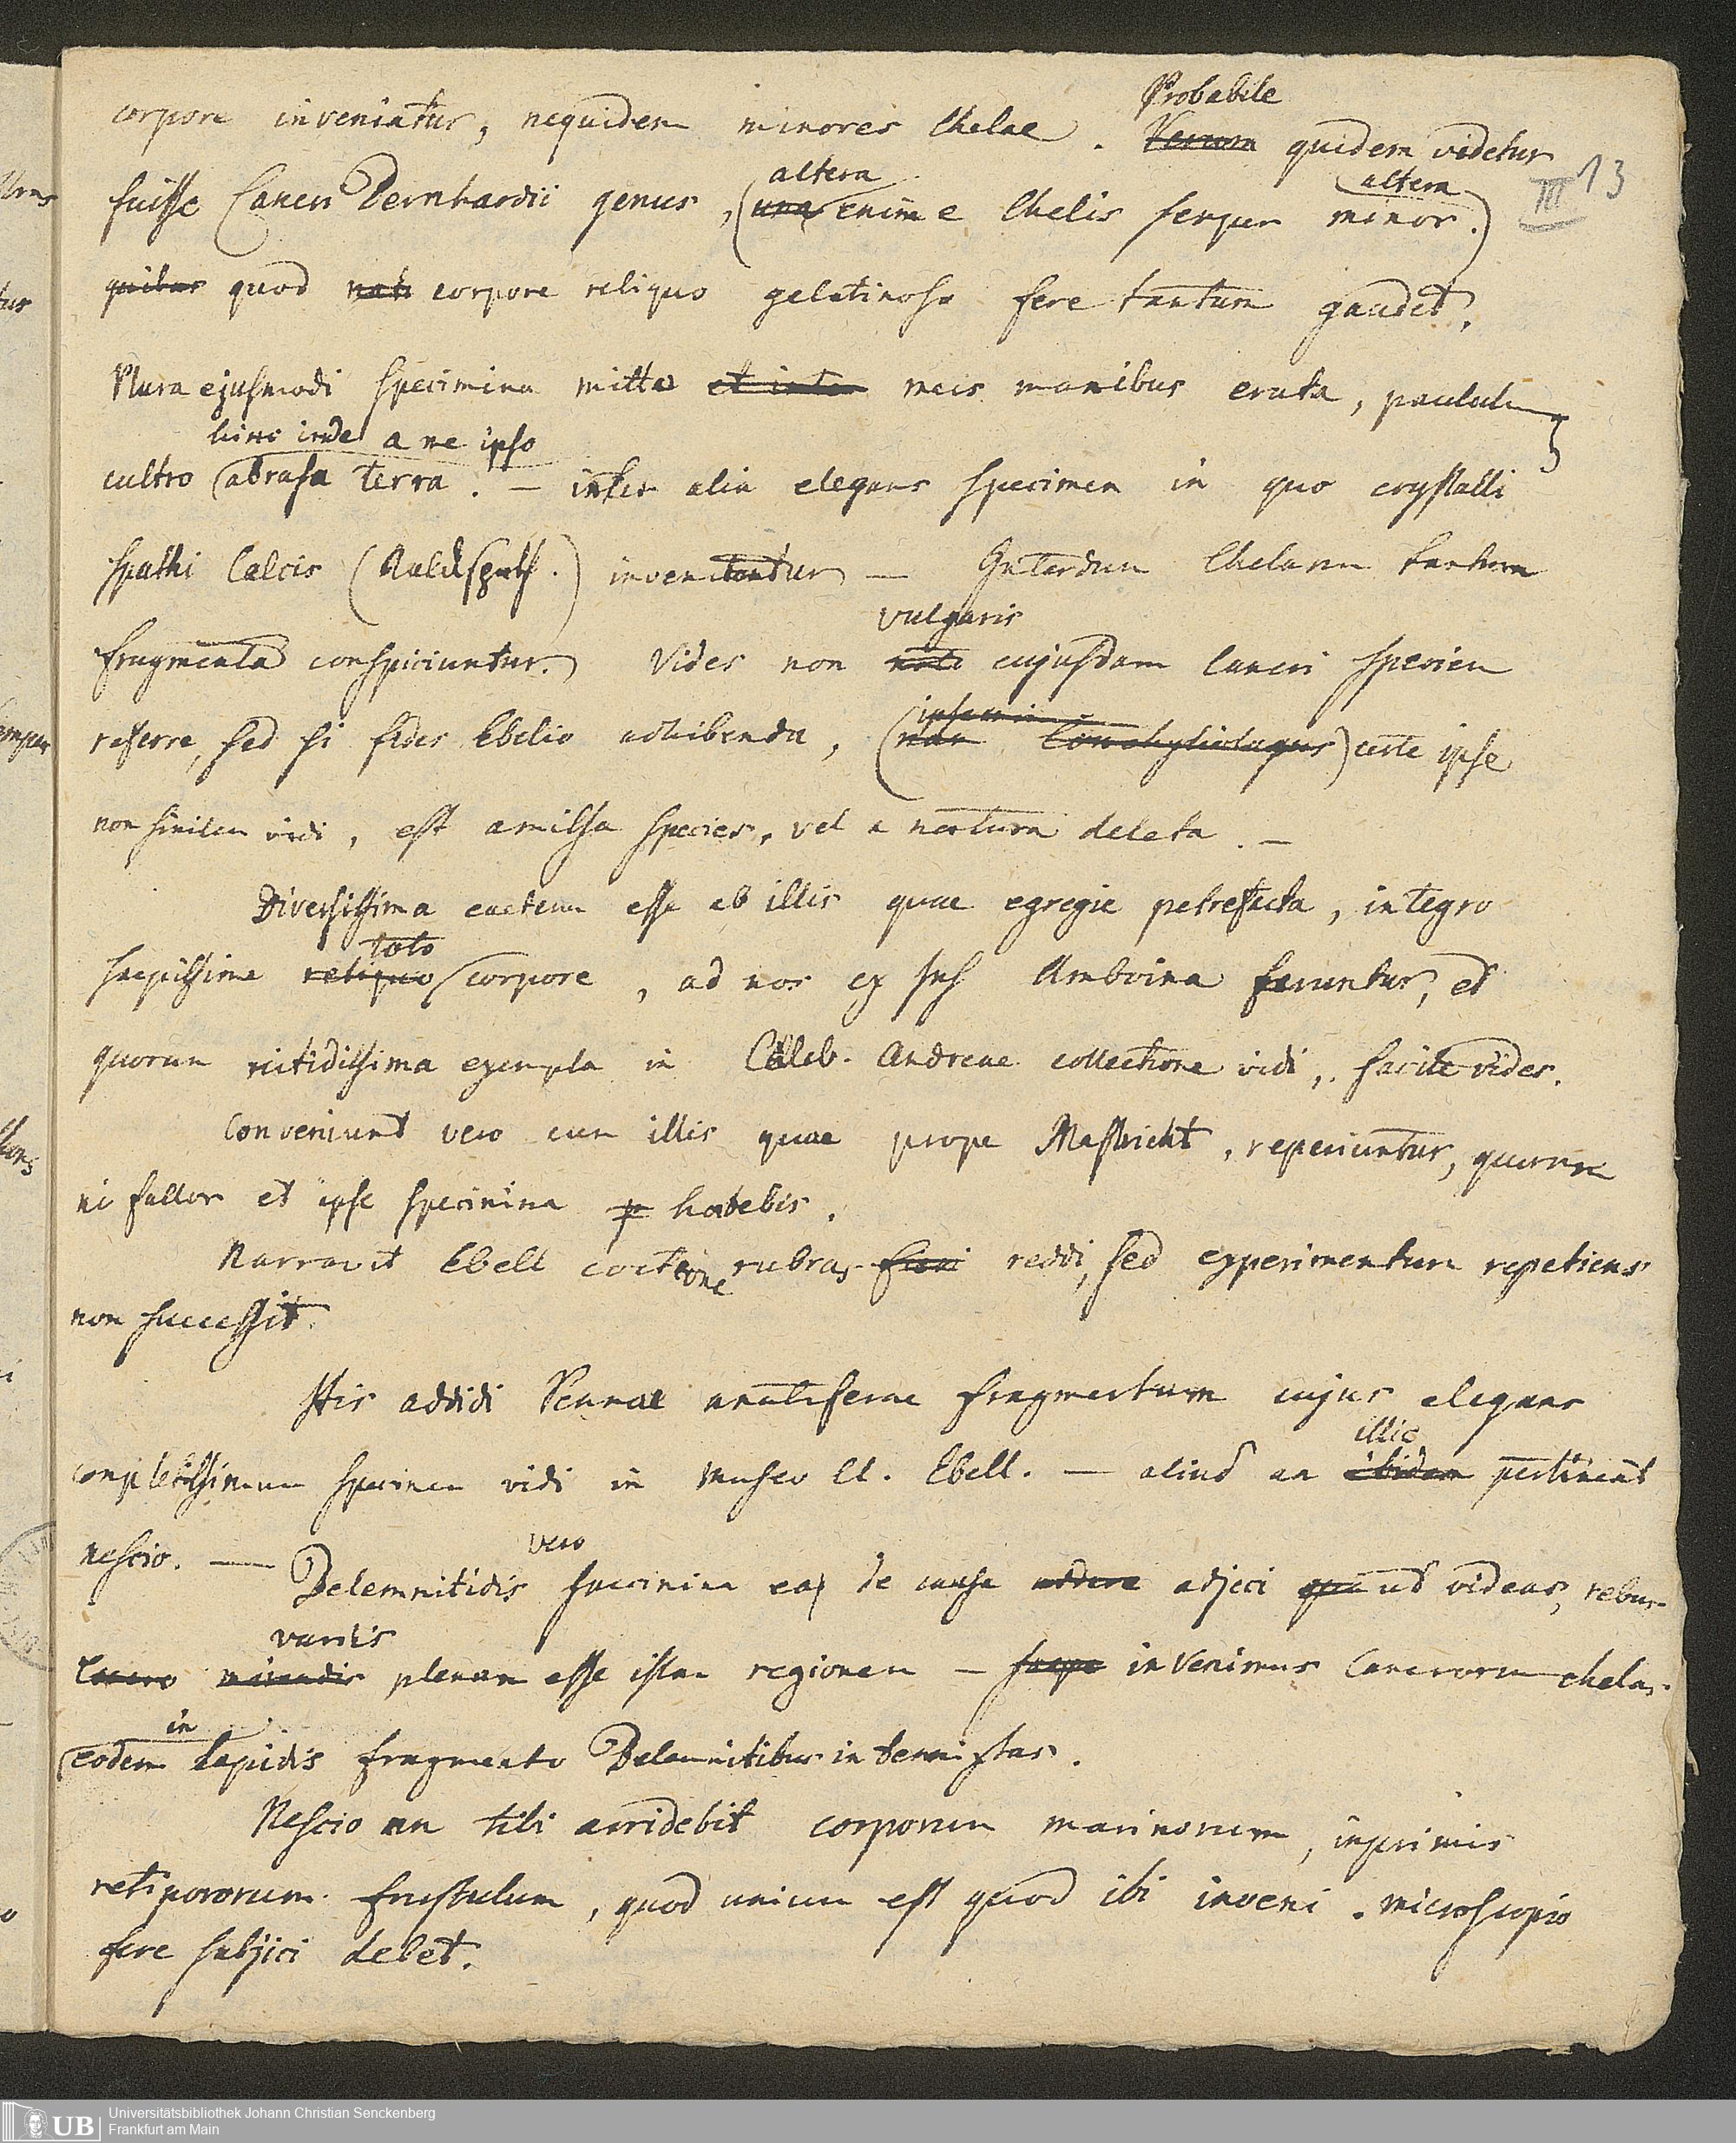 Probabile
corpore inveniatur, nequidem minores Chelae. Verum quidem videtur
altera altera III 13
fuisse Cancri Bernhardii genus, (una enim e Chelis semper minor.)
quibus quod corpore reliquo gelatinoso fere tantum gaudet.
Plura ejusmodi specimina mitto et inter meis manibus eruta, paululum
hinc inde a me ipso
cultro abrasa terra. — inter alia elegans specimen in quo crystalli
spathi Calcis (Kalchspath.) inveniuntur — Interdum Chelarum tantum
vulgaris
fragmenta conspiciuntur. Vides non cujusdam Cancri speciem
referre, sed si fides Ebelio adhibenda, (nam Conchyliologus) certe ipse
non similem vidi, est amissa species, vel a natura deleta. —
Diversissima caeterum esse ab illis quae egregie petrefacta, integro
toto
saepissime reliquo corpore, ad nos ex Ins Amboina feruntur, et
quorum nitidissima exempla in Celeb. Andreae collectione vidi, facile vides.
Conveniunt vero cum illis quae prope Mastricht, reperiuntur, quorum
ni fallor et ipse specimina habebis.
Narravit Ebell coctione rubras fieri reddi, sed experimentum repetiens
non successit.
His addidi Pennae anatiferae fragmentum cujus elegans
illic
completissimum specimen vidi in Museo Cl. Ebell. — aliud an ibidem pertineant
nescio. — vero
Belemnitidis specimina eaq de causa addere adjeci ut videas, rebus
variis
plenam esse istam regionem — saepe invenimus Cancrorum chelas
in
eodem lapidis fragmento Belemnitibus intermixtas.
Nescio an tibi arridebit corporum marinorum, inprimis
retipororum frustulum, quod unicum est quod ibi inveni. microscopio
fere subjici debet.
Universitätsbibliothek Johann Christian Senckenberg
UB Frankfurt am Main